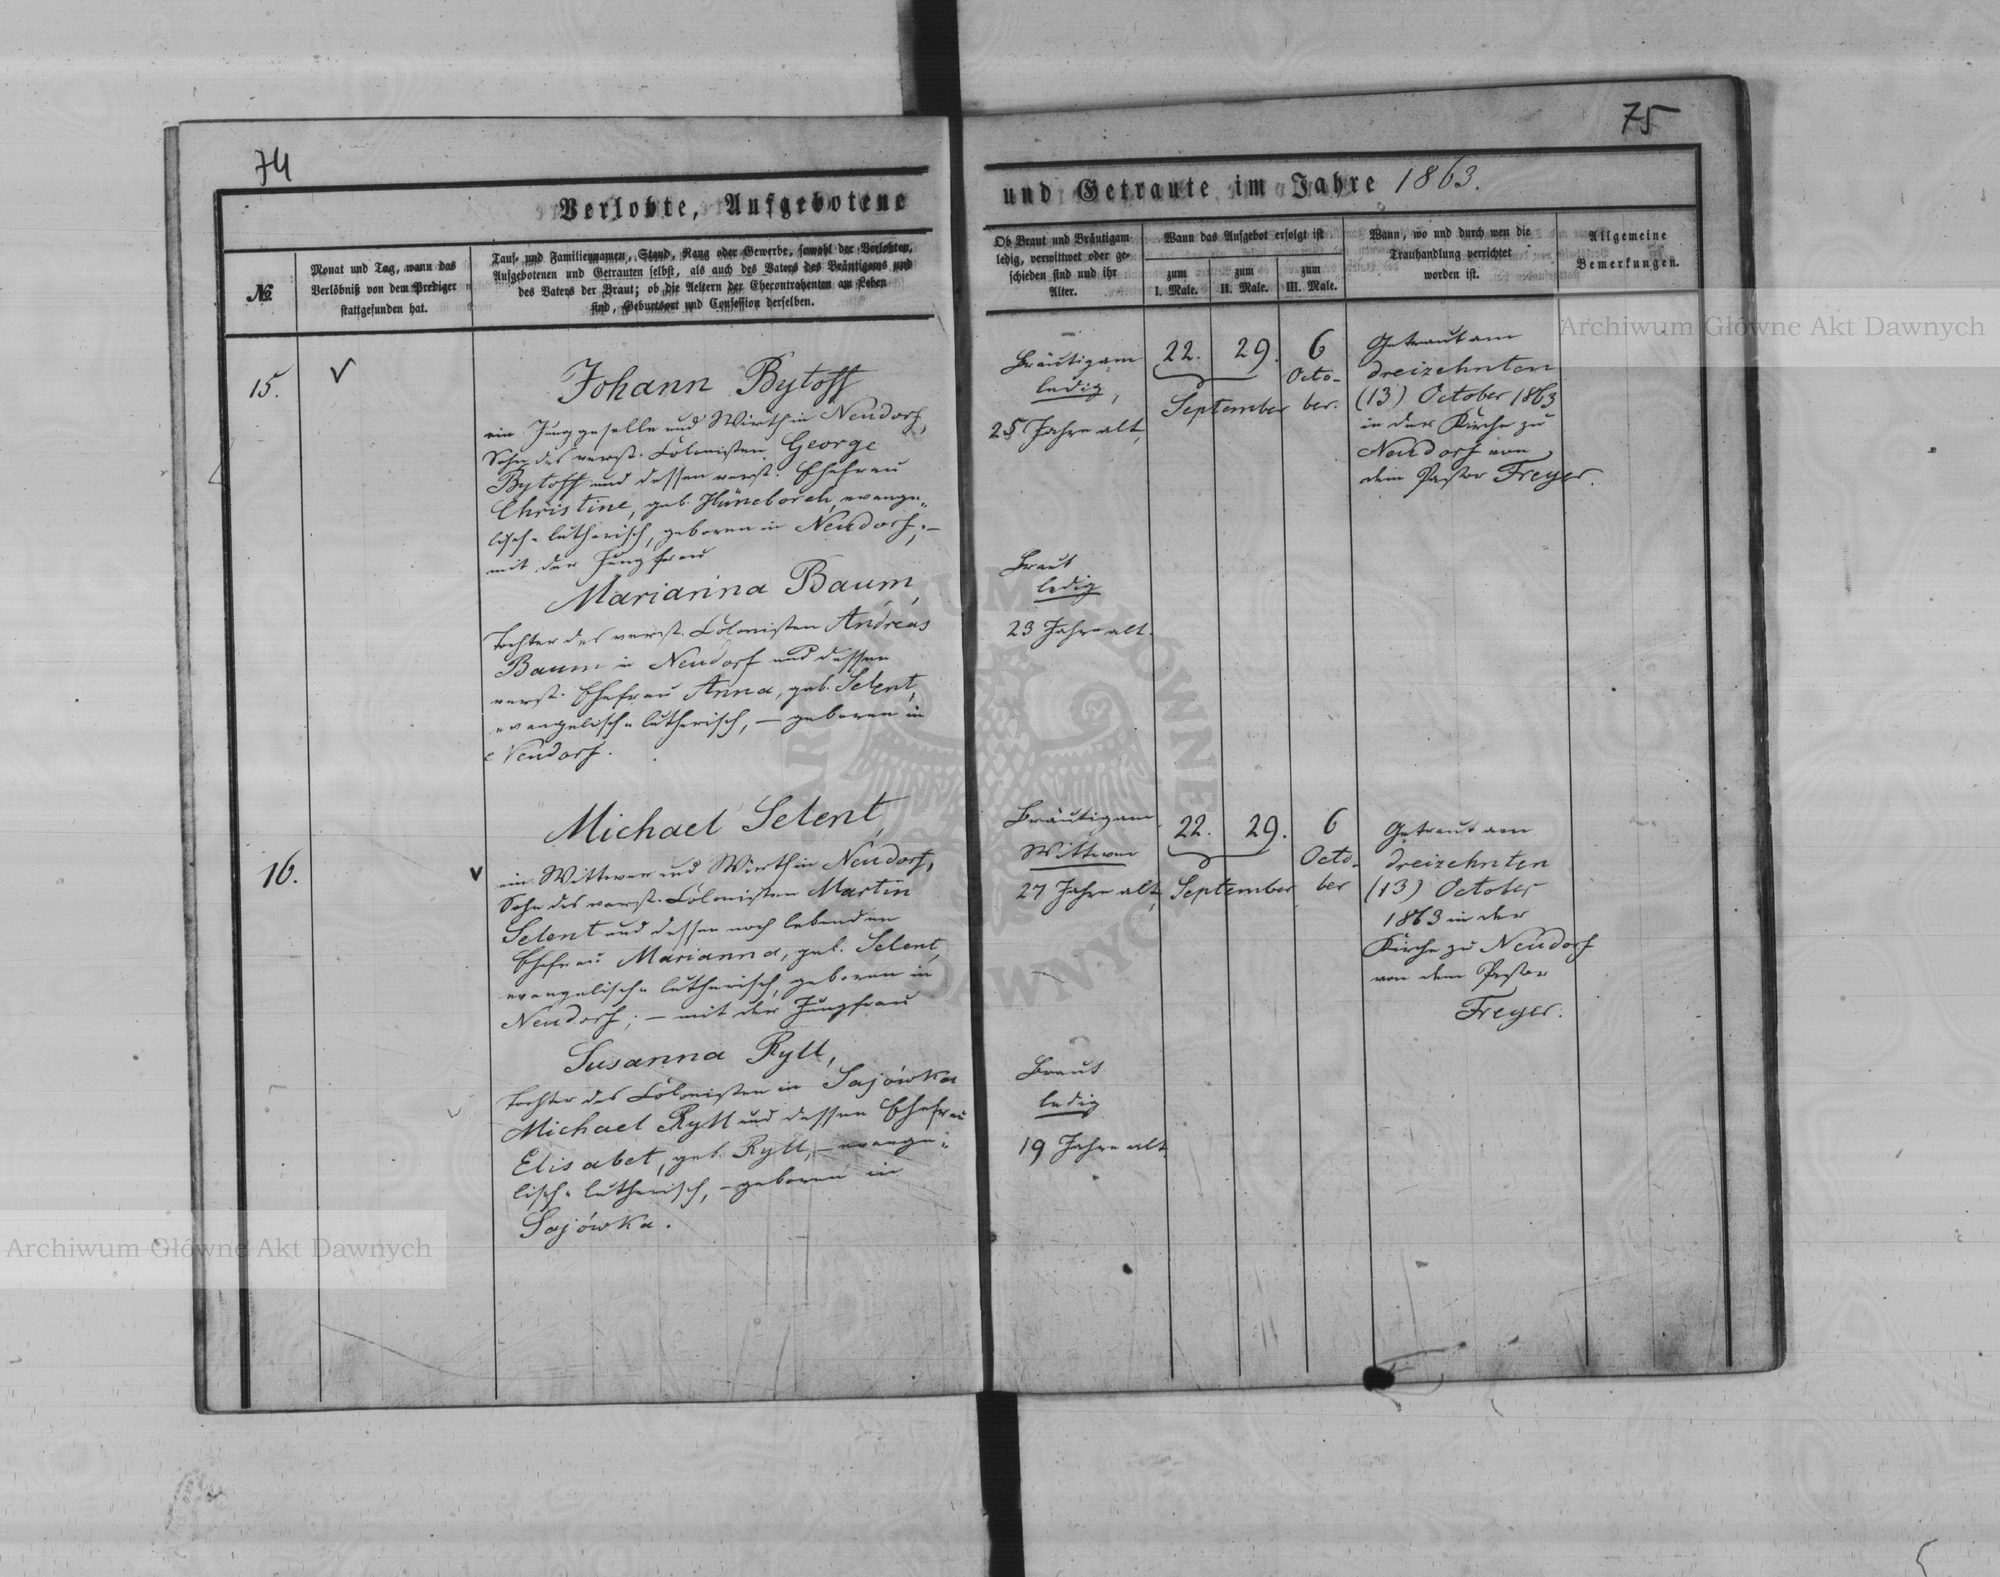 74
75
Verlobte, Aufgebotene
und Getraute im Jahre 1863.
№
Monat und Tag, wann das
Verlöbniß von dem Prediger
stattgefunden hat.
Tauf- und Familiennamen, Stand, Rang oder Gewerbe, sowohl der Verlobten,
Aufgebotenen und Getrauten selbst, als auch des Vaters des Bräutigams und
des Vaters der Braut; ob die Aeltern der Ehecontrahenten am Leben
sind, Geburtsort und Confession derselben.
Ob Braut und Bräutigam
ledig, verwittwet oder ge-
schieden sind und ihr
Alter.
Wann das Aufgebot erfolgt ist
zum
I. Male.
zum
II. Male.
zum
III. Male.
Wann, wo und durch wen die
Trauhandlung verrichtet
worden ist.
Allgemeine
Bemerkungen.
15.
Johann Bytoff
ein Junggeselle und Wirth in Neudorf,
Sohn des verst. Colonisten George
Bytoff und dessen verst. Ehefrau
Christine, geb. Hüneborch, evange-
lisch-lutherisch, geboren in Neudorf; –
mit der Jungfrau
Marianna Baum,
Tochter des verst. Colonisten Andreas
Baum in Neudorf und dessen
verst. Ehefrau Anna, geb. Selent,
evangelisch-lutherisch, – geboren in
Neudorf.
Bräutigam
ledig,
25 Jahre alt,
Braut
ledig
23 Jahre alt.
22. 29.
September
6
Octo-
ber.
Getraut am
dreizehnten
(13) October 1863
in der Kirche zu
Neudorf von
dem Pastor Freyer.
16.
Michael Selent,
ein Wittwer und Wirth in Neudorf,
Sohn des verst. Colonisten Martin
Selent und dessen noch lebenden
Ehefrau Marianna, geb. Selent,
evangelisch-lutherisch, geboren in
Neudorf; – mit der Jungfrau
Susanna Ryll,
Tochter des Colonisten in Sajówka
Michael Ryll und dessen Ehefrau
Elisabet, geb. Ryll, – evange-
lisch-lutherisch, – geboren in
Sajówka.
Bräutigam
Wittwer
27 Jahre alt,
Braut
ledig
19 Jahre alt.
22. 29.
September
6
Octo-
ber
Getraut am
dreizehnten
(13) October
1863 in der
Kirche zu Neudorf
von dem Pastor
Freyer.
Archiwum Główne Akt Dawnych
Archiwum Główne Akt Dawnych
ARCHIWUM GŁÓWNE
AKT DAWNYCH